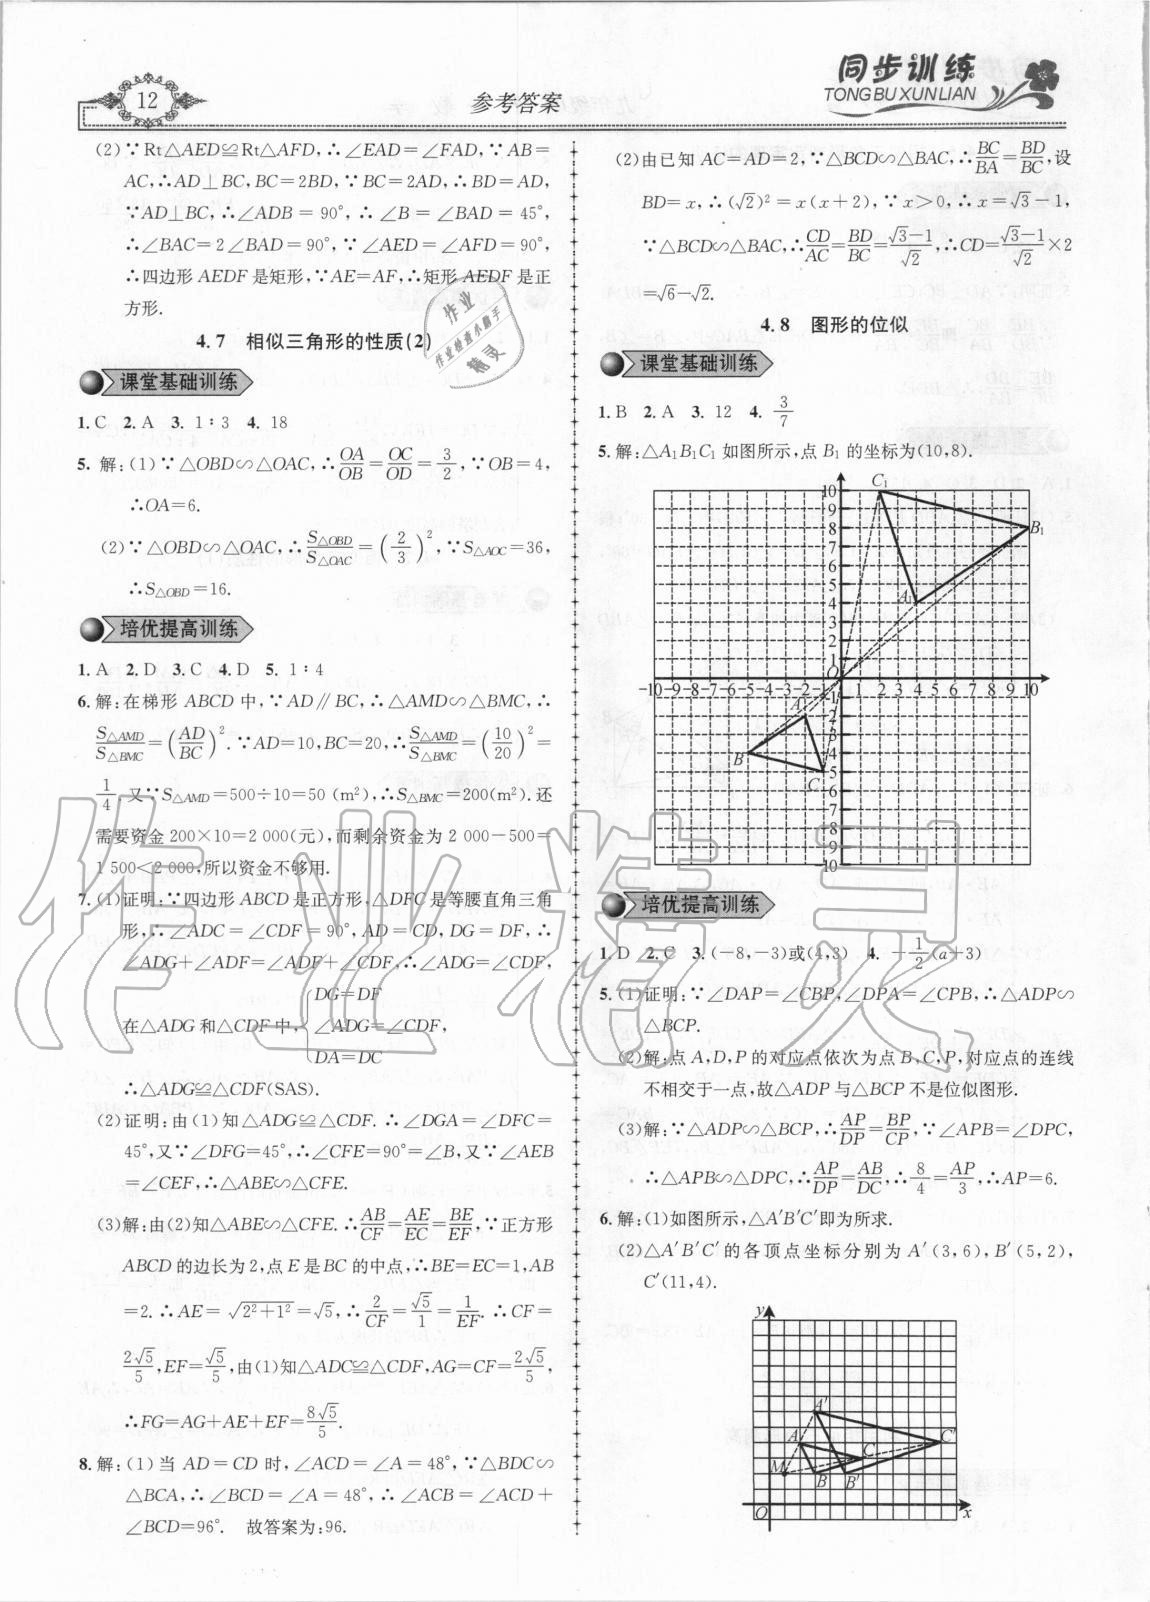 12
参考答案
同步训练
TONGBUXUNLIAN
(2)∵Rt△AED≌Rt△AFD,∴∠EAD=∠FAD,∵AB=
AC,∴AD⊥BC,BC=2BD,∵BC=2AD,∴BD=AD,
∵AD⊥BC,∴∠ADB=90°,∴∠B=∠BAD=45°,
∴∠BAC=2∠BAD=90°,∵∠AED=∠AFD=90°,
∴四边形AEDF是矩形,∵AE=AF,∴矩形AEDF是正
方形.
4.7 相似三角形的性质(2)
课堂基础训练
1.C 2.A 3.1∶3 4.18
5.解:(1)∵△OBD∽△OAC,∴OA/OB=OC/OD=3/2,∵OB=4,
∴OA=6.
(2)∵△OBD∽△OAC,∴S△OBD/S△OAC=(2/3)²,∵S△AOC=36,
∴S△OBD=16.
培优提高训练
1.A 2.D 3.C 4.D 5.1∶4
6.解:在梯形ABCD中,∵AD∥BC,∴△AMD∽△BMC,∴
S△AMD/S△BMC=(AD/BC)².∵AD=10,BC=20,∴S△AMD/S△BMC=(10/20)²=
1/4.又∵S△AMD=500÷10=50(m²),∴S△BMC=200(m²).还
需要资金200×10=2 000(元),而剩余资金为2 000-500=
1 500<2 000,所以资金不够用.
7.(1)证明:∵四边形ABCD是正方形,△DFC是等腰直角三角
形,∴∠ADC=∠CDF=90°,AD=CD,DG=DF,∴
∠ADG+∠ADF=∠ADF+∠CDF,∴∠ADG=∠CDF,
在△ADG和△CDF中,{DG=DF
∠ADG=∠CDF,
DA=DC
∴△ADG≌△CDF(SAS).
(2)证明:由(1)知△ADG≌△CDF.∴∠DGA=∠DFC=
45°,又∵∠DFG=45°,∴∠CFE=90°=∠B,又∵∠AEB
=∠CEF,∴△ABE∽△CFE.
(3)解:由(2)知△ABE∽△CFE.∴AB/CF=AE/EC=BE/EF,∵正方形
ABCD的边长为2,点E是BC的中点,∴BE=EC=1,AB
=2.∴AE=√(2²+1²)=√5,∴2/CF=√5/1=1/EF.∴CF=
2√5/5,EF=√5/5,由(1)知△ADG≌△CDF,AG=CF=2√5/5,
∴FG=AG+AE+EF=8√5/5.
8.解:(1)当AD=CD时,∠ACD=∠A=48°,∵△BDC∽
△BCA,∴∠BCD=∠A=48°,∴∠ACB=∠ACD+
∠BCD=96°. 故答案为:96.
(2)由已知AC=AD=2,∵△BCD∽△BAC,∴BC/BA=BD/BC,设
BD=x,∴(√2)²=x(x+2),∵x>0,∴x=√3-1,
∵△BCD∽△BAC,∴CD/AC=BD/BC=(√3-1)/√2,∴CD=(√3-1)/√2×2
=√6-√2.
4.8 图形的位似
课堂基础训练
1.B 2.A 3.12 4.3/7
5.解:△A₁B₁C₁如图所示,点B₁的坐标为(10,8).
C₁
B₁
A₁
O
A
B
C
10
9
8
7
6
5
4
3
2
1
-10 -9 -8 -7 -6 -5 -4 -3 -2 -1 1 2 3 4 5 6 7 8 9 10
-1
-2
-3
-4
-5
-6
-7
-8
-9
-10
培优提高训练
1.D 2.C 3.(-8,-3)或(4,3) 4.-1/2(a+3)
5.(1)证明:∵∠DAP=∠CBP,∠DPA=∠CPB,∴△ADP∽
△BCP.
(2)解:点A,D,P的对应点依次为点B,C,P,对应点的连线
不相交于一点,故△ADP与△BCP不是位似图形.
(3)解:∵△ADP∽△BCP,∴AP/DP=BP/CP,∵∠APB=∠DPC,
∴△APB∽△DPC,∴AP/DP=AB/DC,∴8/4=AP/3,∴AP=6.
6.解:(1)如图所示,△A′B′C′即为所求.
(2)△A′B′C′的各顶点坐标分别为A′(3,6),B′(5,2),
C′(11,4).
y
A′
A
C
C′
M
B
B′
O
x
作业精灵
作业
作业检查小助手
精灵